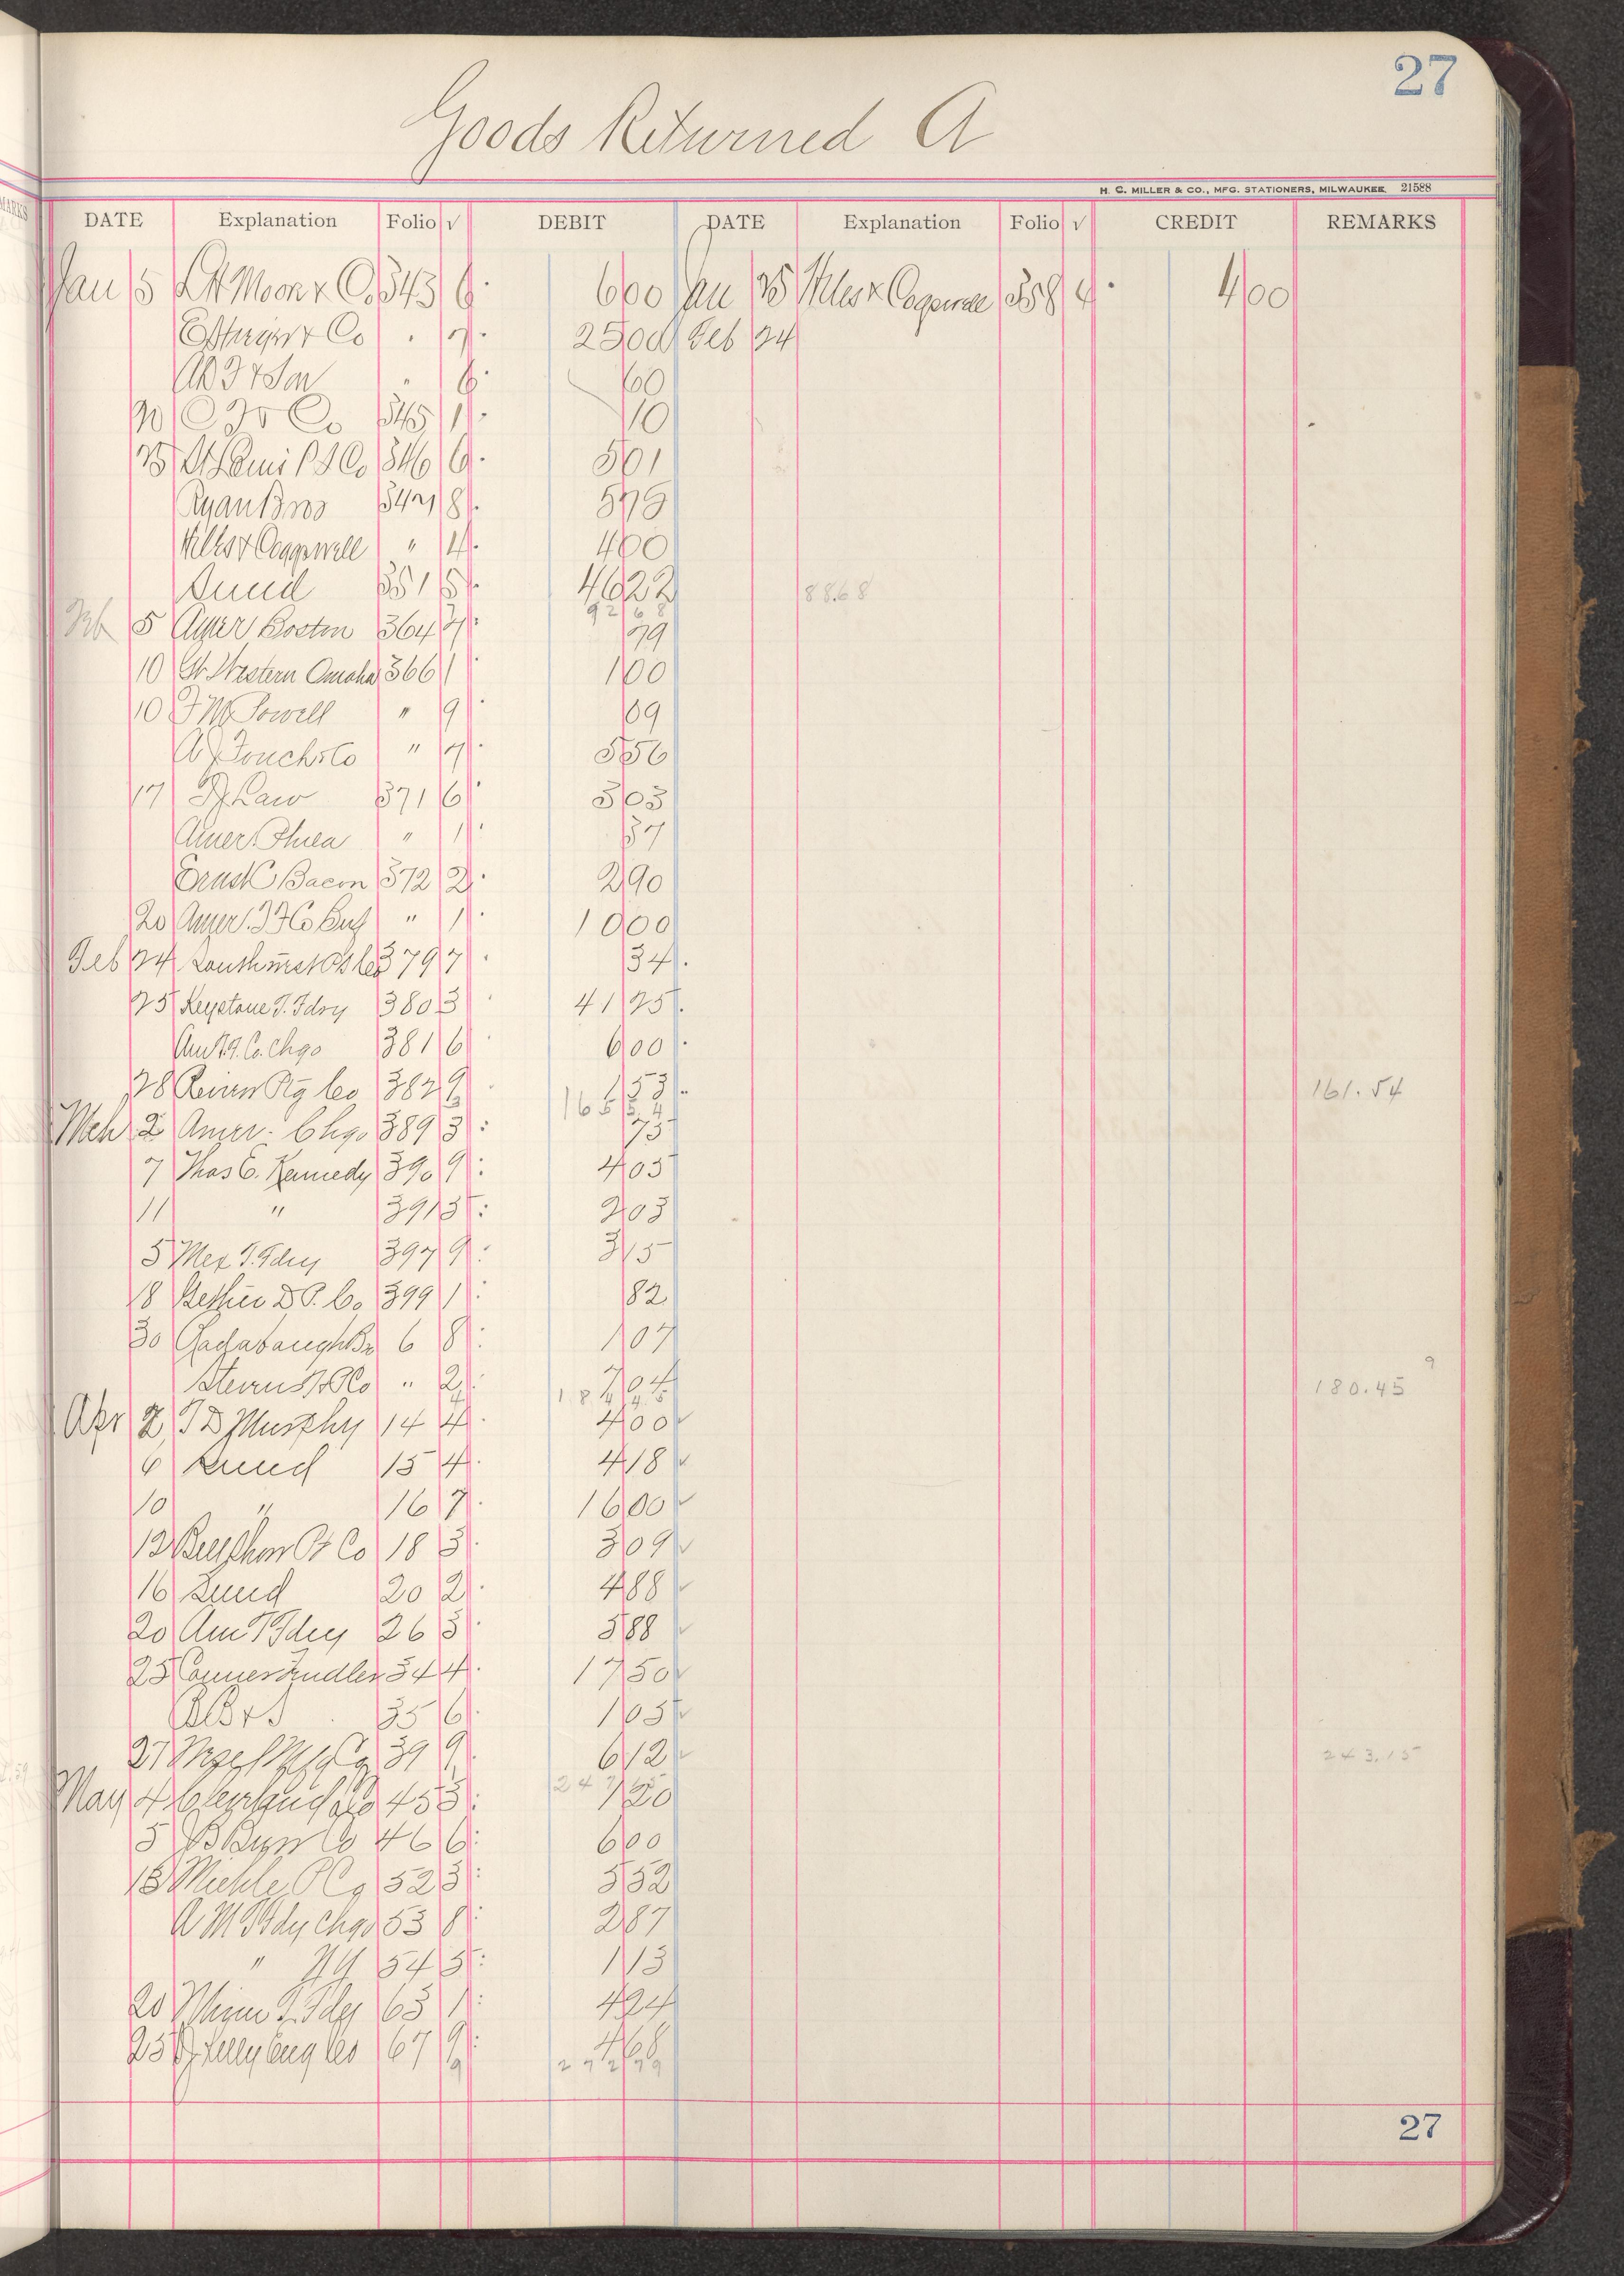 27
Goods Returned A
H. C. MILLER & CO., MFG. STATIONERS, MILWAUKEE. 21588
DATE Explanation Folio √ DEBIT DATE Explanation Folio √ CREDIT REMARKS
Jan 5 Moon & Co 343 6 6 00 Jan 25 & 358 4 4 00
& Co " 7 25 00 Feb 24
& Son " 6 60
20 C & Co 345 1 10
25 St Louis P S Co 346 6 5 01
Ryan Bros 347 8 5 75
Wells & Coggswell " 4 4 00
Lund 351 5 46 22 88.68
92 68
Feb 5 Amer Boston 364 7 79
10 Gt Western Omaha 366 1 1 00
10 F M Powell " 9 09
A J Fouch & Co " 7 5 56
17 Law 371 6 3 03
Amer Phila " 1 37
Ernst C Bacon 372 2 2 90
20 Amer. T F Co Buf " 1 10 00
Feb 24 379 7 34
25 Keystone T. Fdry 380 3 41 25
Am T. F. Co. Chgo 381 6 6 00
28 Co 382 9 1 53
165 54 161.54
Mch 2 Amer. Chgo 389 3 75
7 Thos E. Kennedy 390 9 4 05
11 " 391 5 2 03
5 Mex T. Fdry 397 9 3 15
18 D P. Co 399 1 82
30 Radabaugh Br 6 8 1 07
Co " 2 7 04
184 45 180.45
Apr 2 T D Murphy 14 4 4 00
6 Lund 15 4 4 18
10 " 16 7 16 00
12 Co 18 3 3 09
16 Lund 20 2 4 88
20 Am T Fdry 26 3 5 88
25 Conner Fendler 34 4 17 50
35 6 1 05
27 Mfg Co 39 9 6 12
243.15
May 4 Cleveland 45 3 1 20
5 Co 46 6 6 00
15 Miehle P Co 52 3 5 52
A M T Fdy Chgo 53 8 2 87
" N Y 54 5 1 13
20 T. Fdry 63 1 4 24
25 Kelly Eng Co 67 9 4 68
272 79
27